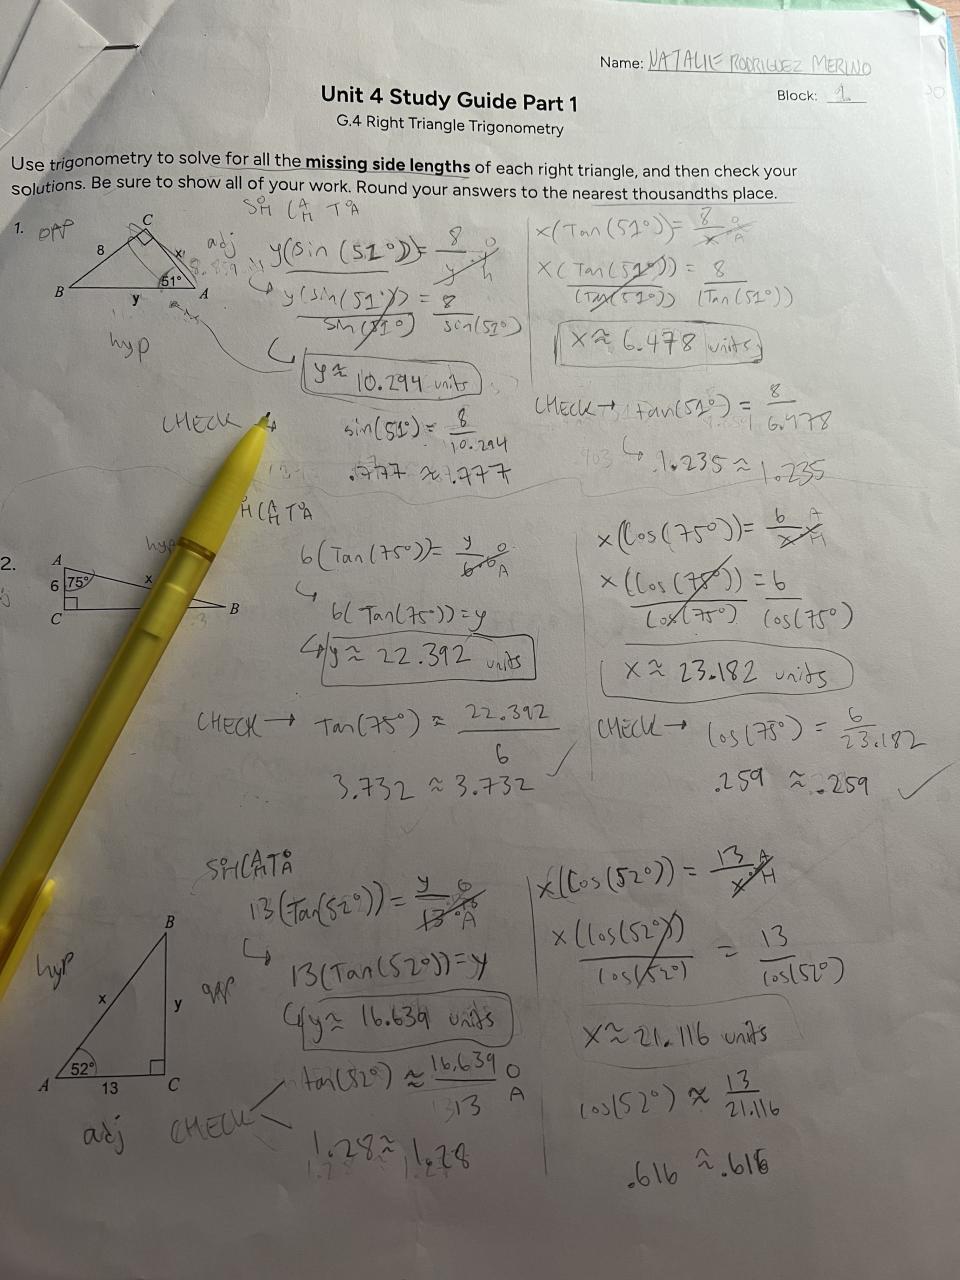 Name: NATALIE RODRIGUEZ MERINO
Unit 4 Study Guide Part 1
Block: 1
G.4 Right Triangle Trigonometry
Use trigonometry to solve for all the missing side lengths of each right triangle, and then check your
solutions. Be sure to show all of your work. Round your answers to the nearest thousandths place.
1.
OPP
C
8
x
adj
51°
B
y
A
hyp
SOH CAH TOA
y(sin(51°)) = 8/y O/H
y(sin(51°))/sin(51°) = 8/sin(51°)
y ≈ 10.294 units
CHECK →
sin(51°) = 8/10.294
.777 ≈ .777
x(Tan(51°)) = 8/x O/A
x(Tan(51°))/(Tan(51°)) = 8/(Tan(51°))
x ≈ 6.478 units
CHECK → tan(51°) = 8/6.478
1.235 ≈ 1.235
2.
hyp
A
6 75° x
C
B
H CAH TOA
6(Tan(75°)) = y/6 · 6 O/A
6(Tan(75°)) = y
y ≈ 22.392 units
CHECK → Tan(75°) ≈ 22.392/6
3.732 ≈ 3.732 ✓
x(Cos(75°)) = 6/x A/H
x(Cos(75°))/Cos(75°) = 6/Cos(75°)
x ≈ 23.182 units
CHECK → Cos(75°) = 6/23.182
.259 ≈ .259 ✓
B
hyp
x
y
opp
52°
A
13
C
adj
SOHCAHTOA
13(Tan(52°)) = y/13 · 13 O/A
13(Tan(52°)) = y
y ≈ 16.639 units
CHECK
tan(52°) ≈ 16.639/13 O/A
1.28 ≈ 1.28
x(Cos(52°)) = 13/x A/H
x(Cos(52°))/Cos(52°) = 13/Cos(52°)
x ≈ 21.116 units
cos(52°) ≈ 13/21.116
.616 ≈ .616